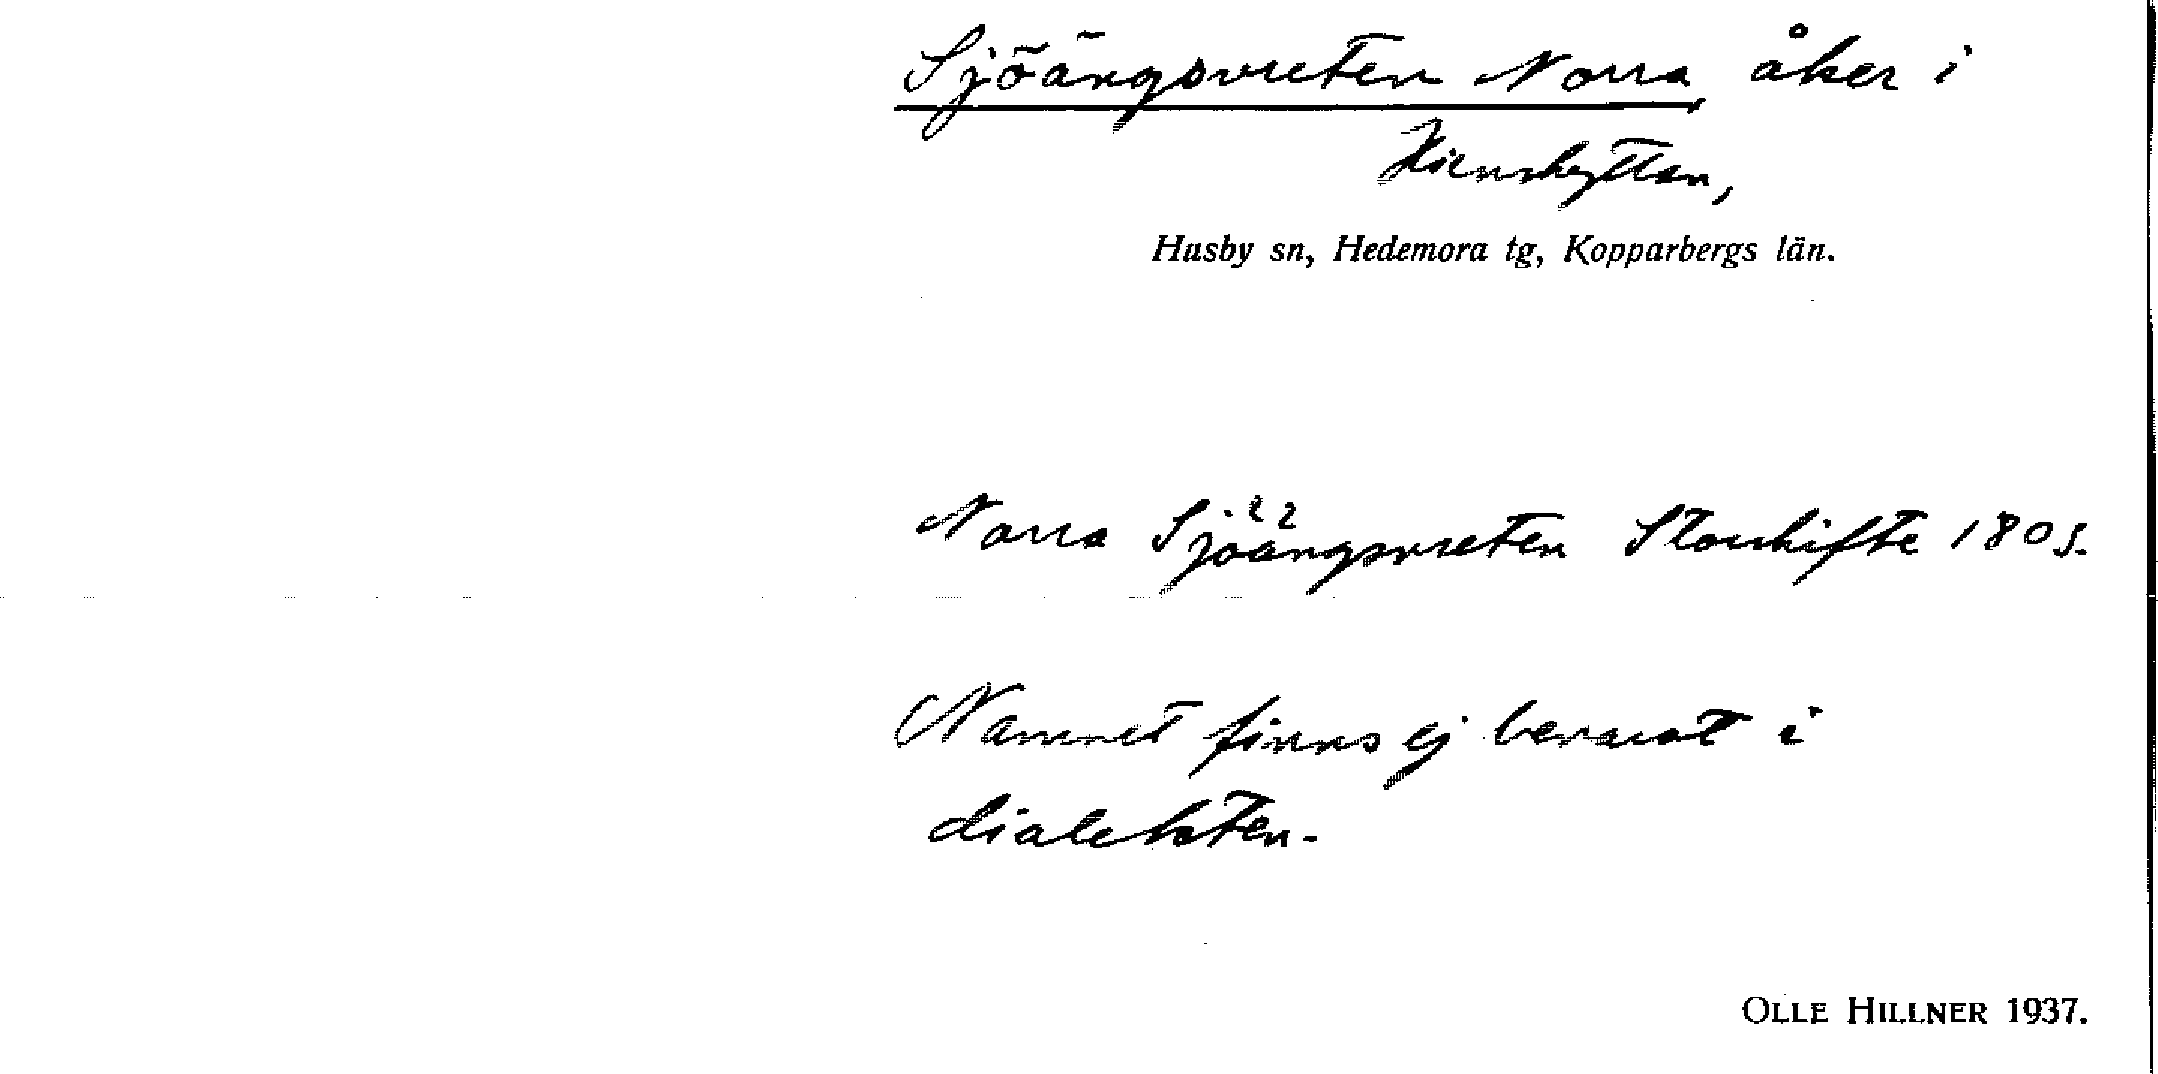 Sjöängsvreten Norra, åker i
Kienshyttan,
Husby sn, Hedemora tg, Kopparbergs län.
Norra Sjöängsvreten Storskifte 1805.
Namnet finns ej bevarat i
dialekten.
OLLE HILLNER 1937.